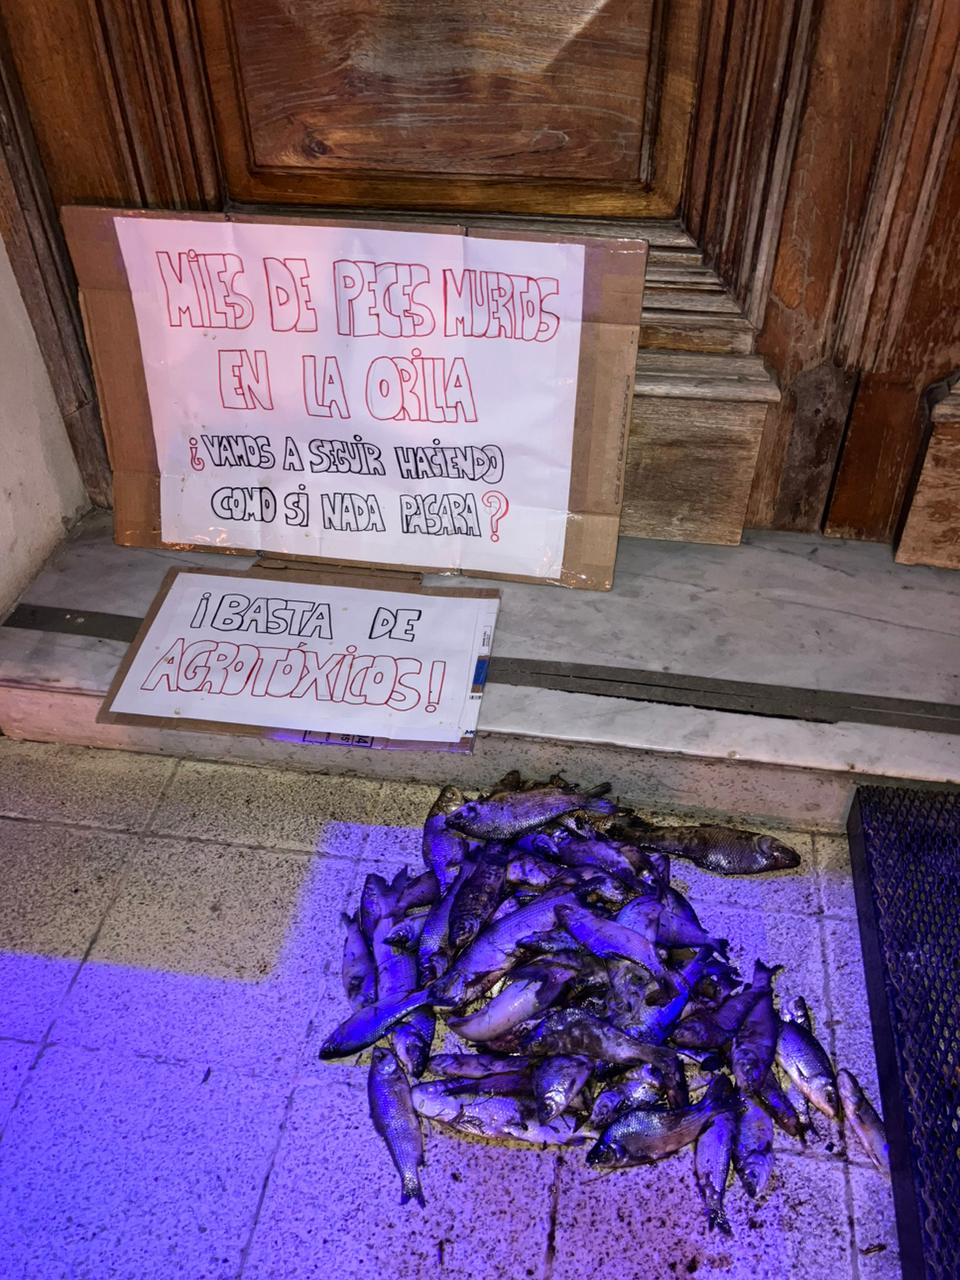 MILES DE PECES MUERTOS
EN LA ORILLA
¿VAMOS A SEGUIR HACIENDO
COMO SI NADA PASARA?
¡BASTA DE
AGROTÓXICOS!